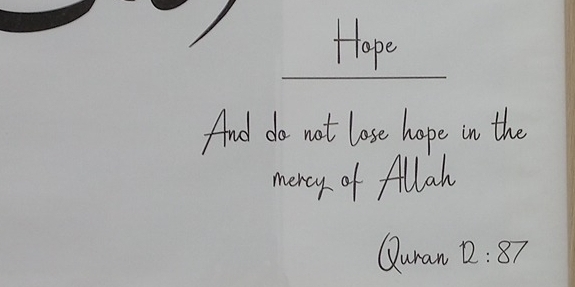 Hope
And do not lose hope in the
mercy of Allah
Quran 12:87